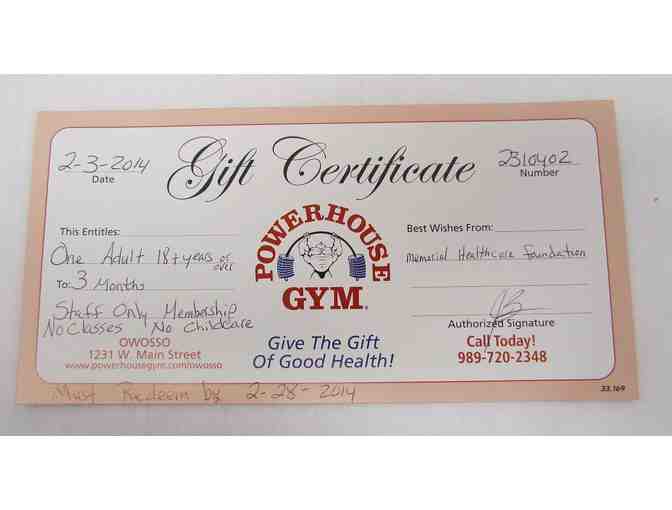 Gift Certificate
2-3-2014
Date
2310402
Number
This Entitles:
One Adult 18+ years or over
To: 3 Months
Staff Only Membership
No Classes No Childcare
OWOSSO
1231 W. Main Street
www.powerhousegym.com/owosso
POWERHOUSE
GYM
Give The Gift
Of Good Health!
Best Wishes From:
Memorial Healthcare Foundation
Authorized Signature
Call Today!
989-720-2348
Must Redeem by 2-28-2014
33.169